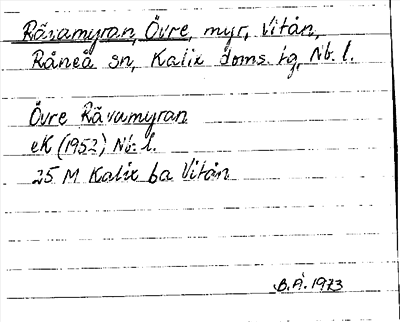 Rävamyran, Övre, myr, Vitån,
Råneå sn, Kalix doms. tg, Nb. l.
Övre Rävamyran
eK (1952) Nb. l.
25 M Kalix ba Vitån
B.Å. 1973